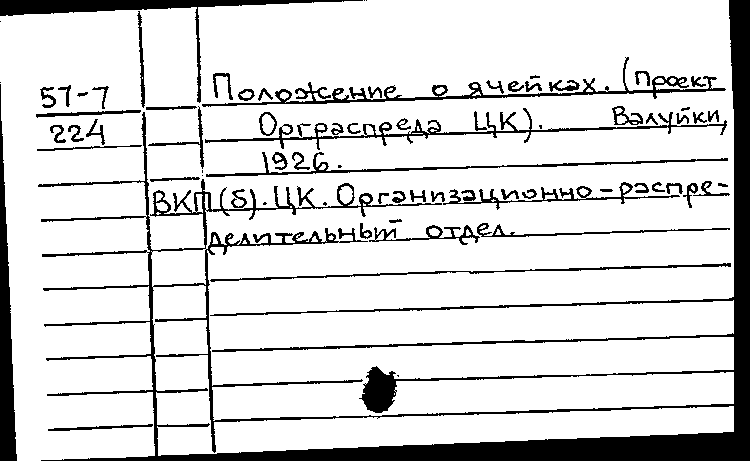 57-7 Положение о ячейках. (Проект
224 Орграспреда ЦК). Валуйки,
1926.
ВКП(б). ЦК. Организационно-распре-
делительный отдел.